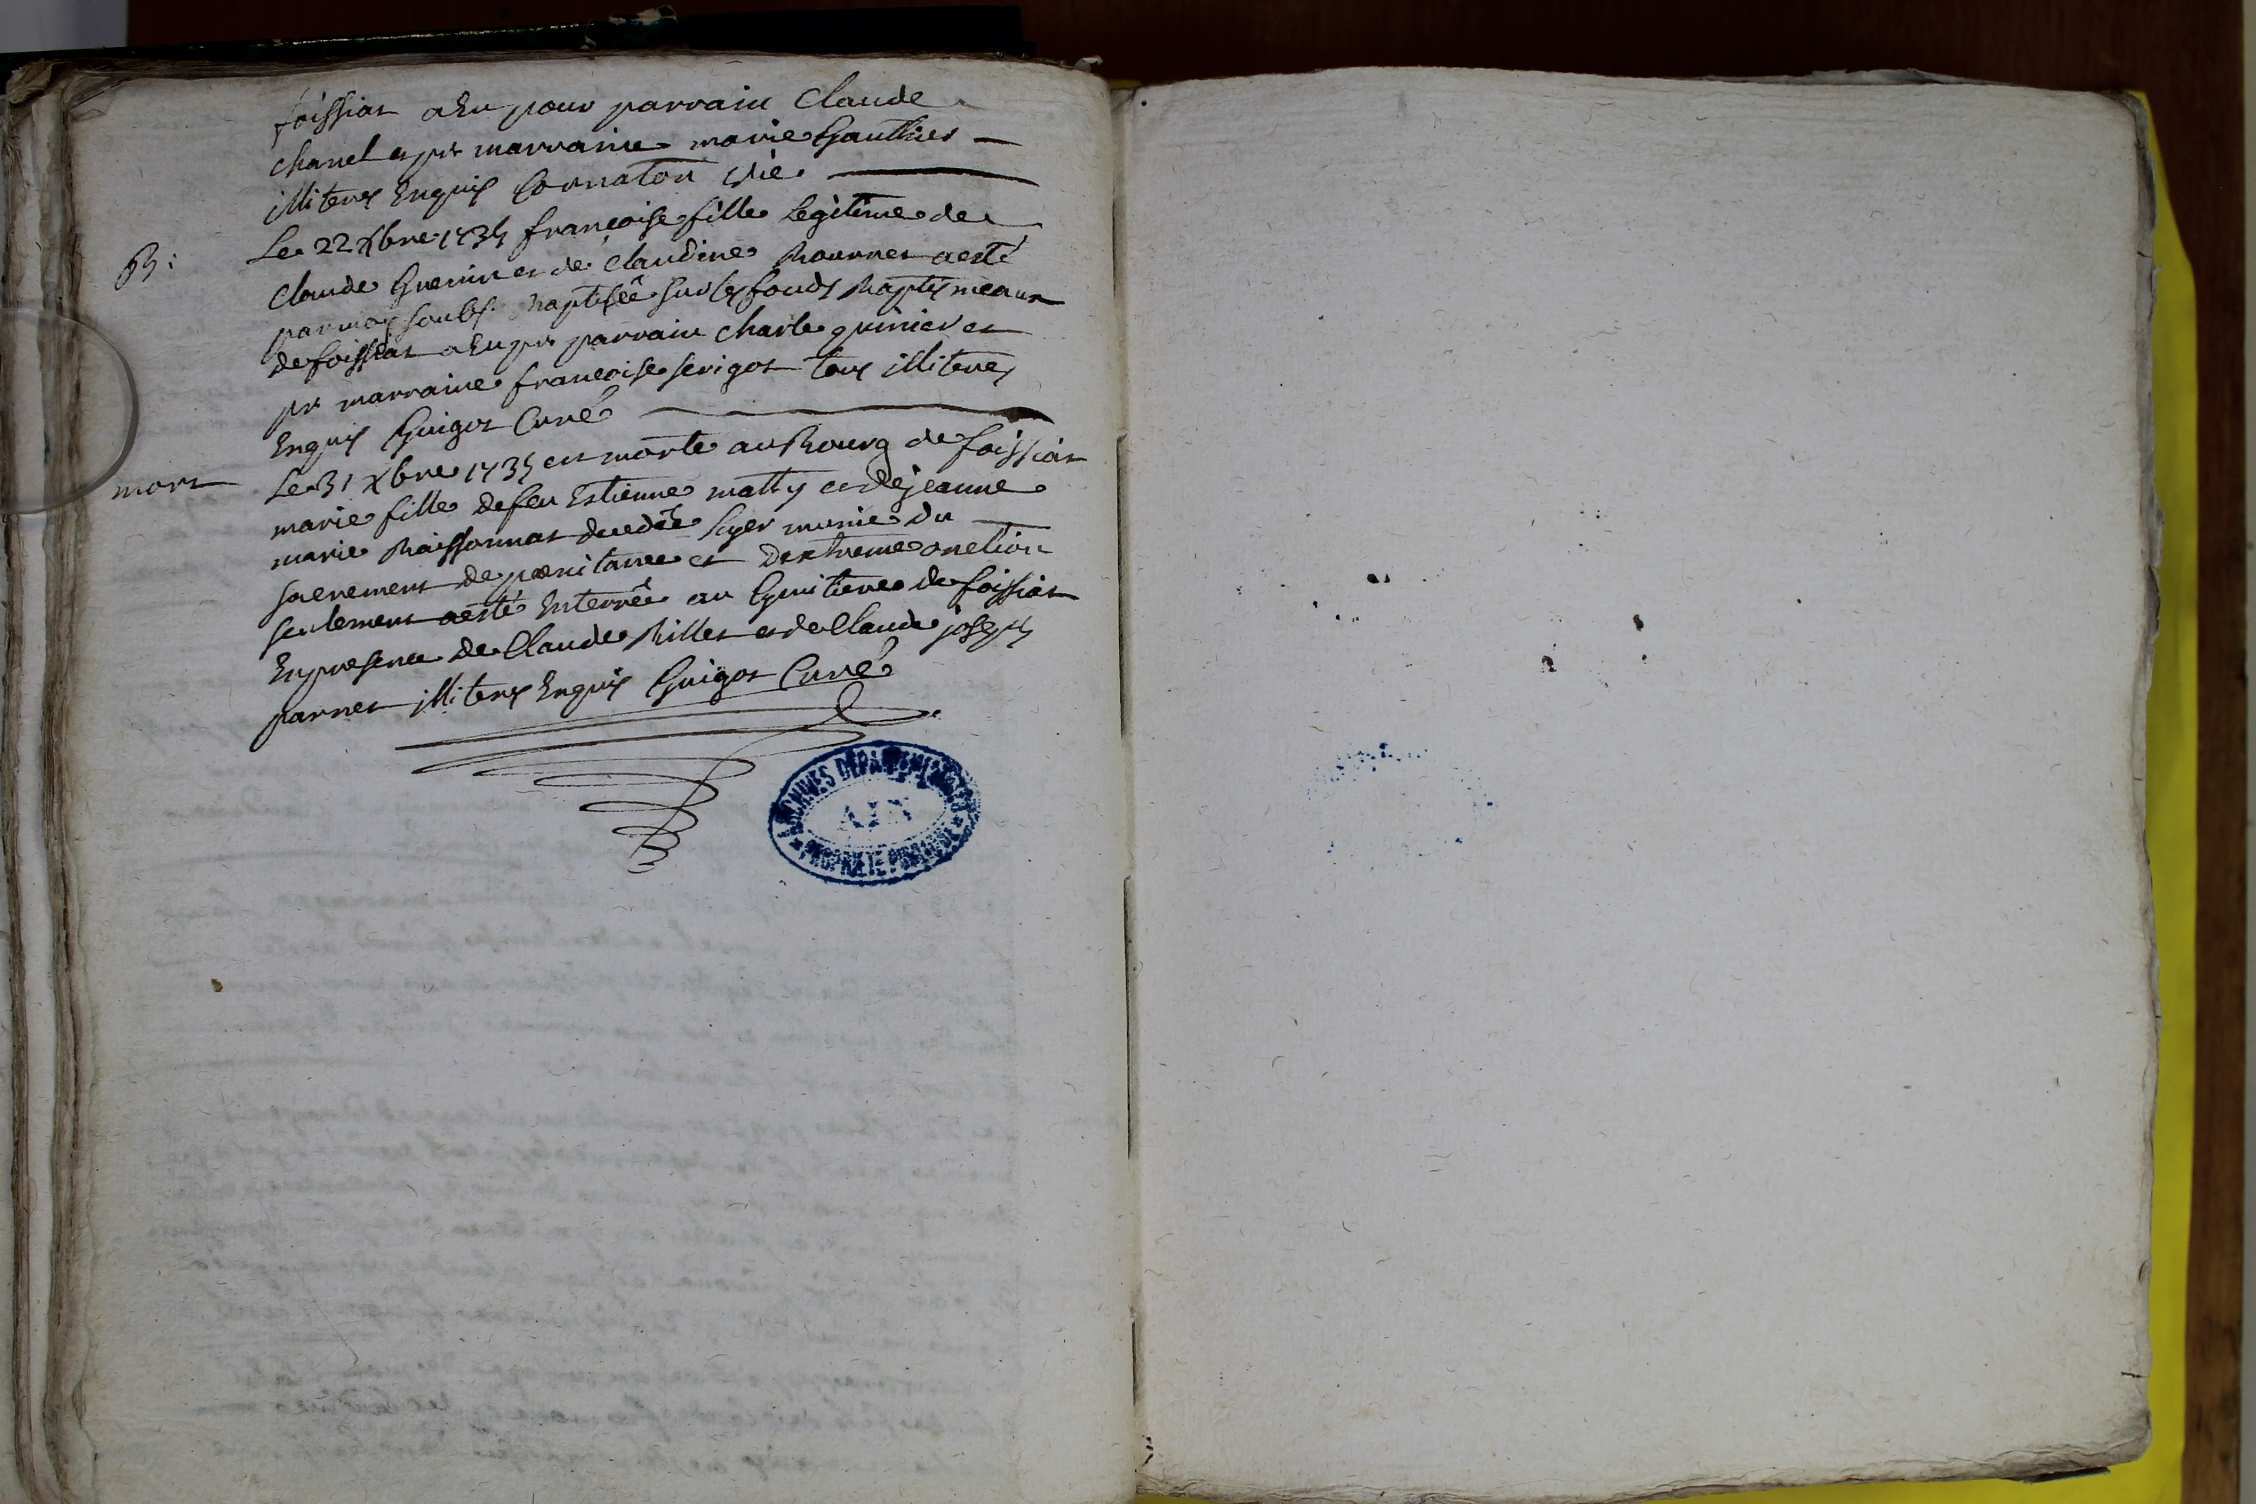 foissiat a Eu pour parrain Claude
chanel et pr marraine marie Gauthier
illiteres Enquis Cornaton vic
B: Le 22 xbre 1735 françoise fille legitime de
Claude Guenin et de Claudine Bournet a esté
par moy soubs. Baptisée sur les fonds Baptismeaux
de foissiat a Eu pr parrain Charle quinier et
pr marraine francoise serigot tous illiteres
Enquis Guigot Curé
mort Le 31 xbre 1735 est morte au Bourg de foissiat
marie fille de feu Estienne matty et de jeanne
marie Boissonnat decedée hyer munie du
sacrement de pœnitance et dextreme onction
seulement a esté Enterrée au Cymitiere de foissiat
En presence de Claude Billet et de Claude joseph
parnet illiteres Enquis Guigot Curé
ARCHIVES DÉPARTEMENTALES
AIN
PROPRIÉTÉ PUBLIQUE